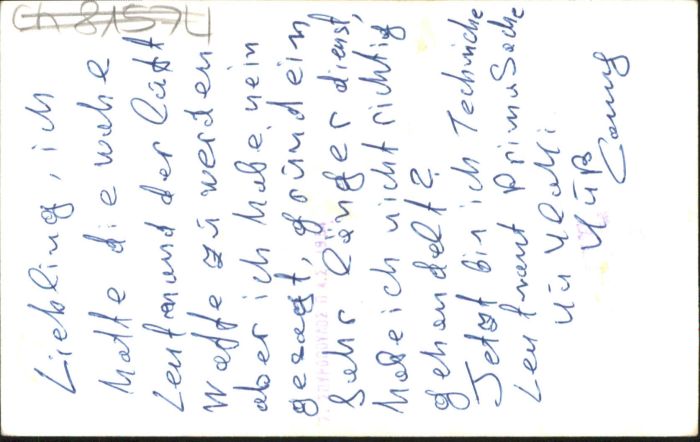 Ch 81574
Liebling, ich
hatte die wahl
Leutnand der Luft
Waffe zu werden
aber ich habe nein
gesagt, grund ein
Jahr länger dienst,
habe ich nicht richtig
gehandelt?
Jetzt bin ich Technische
Leutnant prima Sache
Kuß